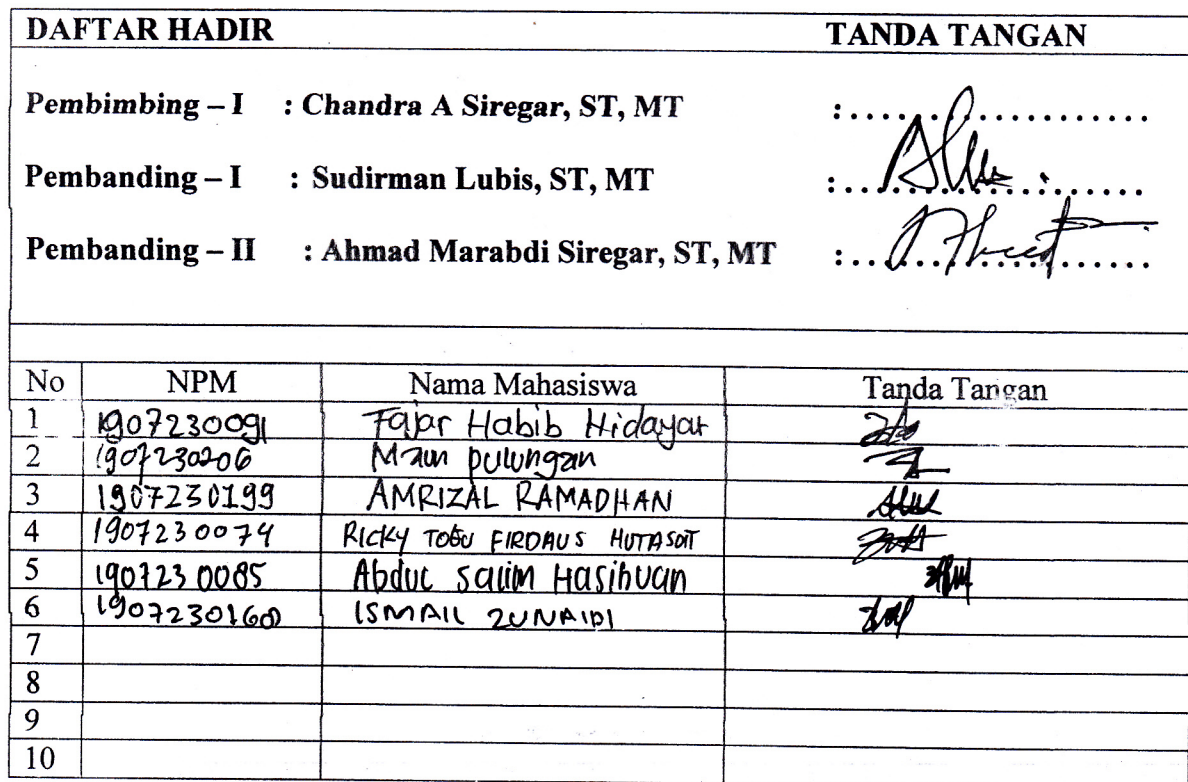 DAFTAR HADIR TANDA TANGAN
Pembimbing – I : Chandra A Siregar, ST, MT :......................
Pembanding – I : Sudirman Lubis, ST, MT :......................
Pembanding – II : Ahmad Marabdi Siregar, ST, MT :......................
No NPM Nama Mahasiswa Tanda Tangan
1 1907230091 Fajar Habib Hidayat
2 1907230206 Maun pulungan
3 1907230199 AMRIZAL RAMADHAN
4 1907230074 RICKY TOGU FIRDAUS HUTASOIT
5 1907230085 Abdul Salim Hasibuan
6 1907230160 ISMAIL ZUNAIDI
7
8
9
10